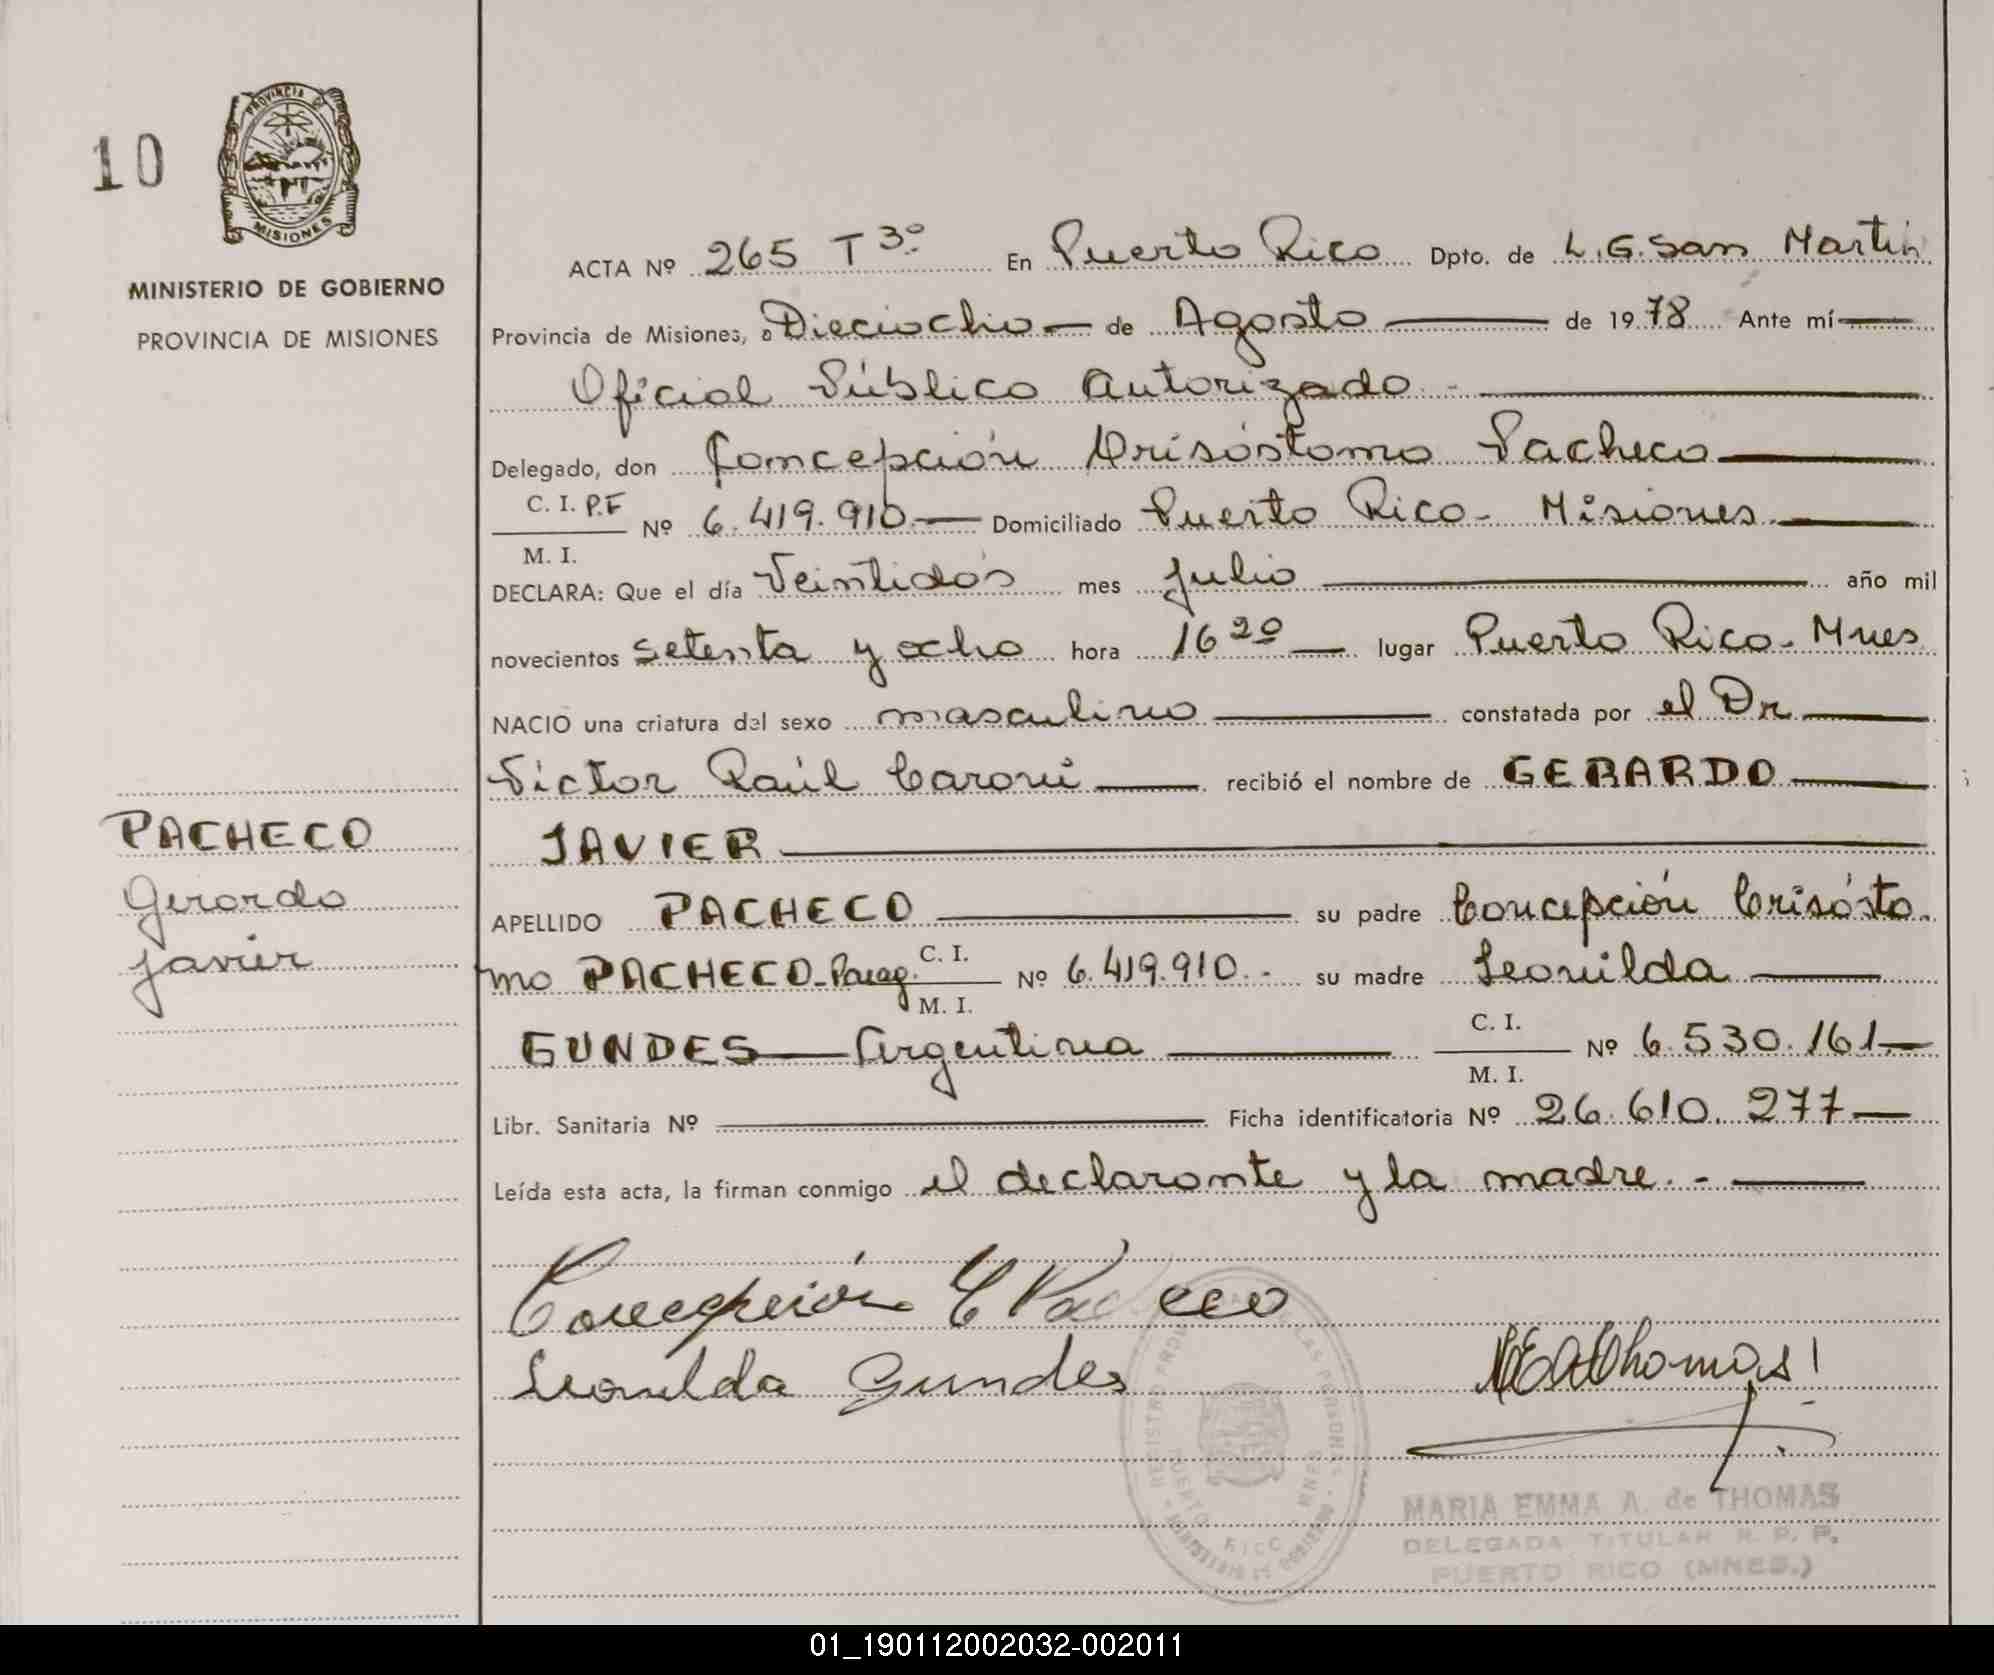 10
PROVINCIA DE
MISIONES
MINISTERIO DE GOBIERNO
PROVINCIA DE MISIONES
PACHECO
Gerardo
Javier
ACTA Nº 265 T 3º En Puerto Rico Dpto. de L.G. San Martín
Provincia de Misiones, a Dieciocho — de Agosto — de 1978 Ante mí —
Oficial Público Autorizado.- —
Delegado, don Concepción Crisóstomo Pacheco —
C. I. P.F
M. I. Nº 6.419.910.— Domiciliado Puerto Rico - Misiones. —
DECLARA: Que el día Veintidós mes julio — año mil
novecientos setenta y ocho hora 16 20 — lugar Puerto Rico - Mnes
NACIO una criatura del sexo masculino — constatada por el Dr —
Víctor Raúl Caroni — recibió el nombre de GERARDO —
JAVIER —
APELLIDO PACHECO — su padre Concepción Crisósto
mo PACHECO - Parag. C. I. / M. I. Nº 6.419.910.- su madre Leonilda —
GUNDES — Argentina — C. I. / M. I. Nº 6.530.161.—
Libr. Sanitaria Nº — Ficha identificatoria Nº 26.610.277 —
Leída esta acta, la firman conmigo el declarante y la madre.- —
Concepción C Pacheco
Leonilda Gundes
MARIA EMMA A. de THOMAS
DELEGADA TITULAR R. P. P.
PUERTO RICO (MNES.)
01_190112002032-002011